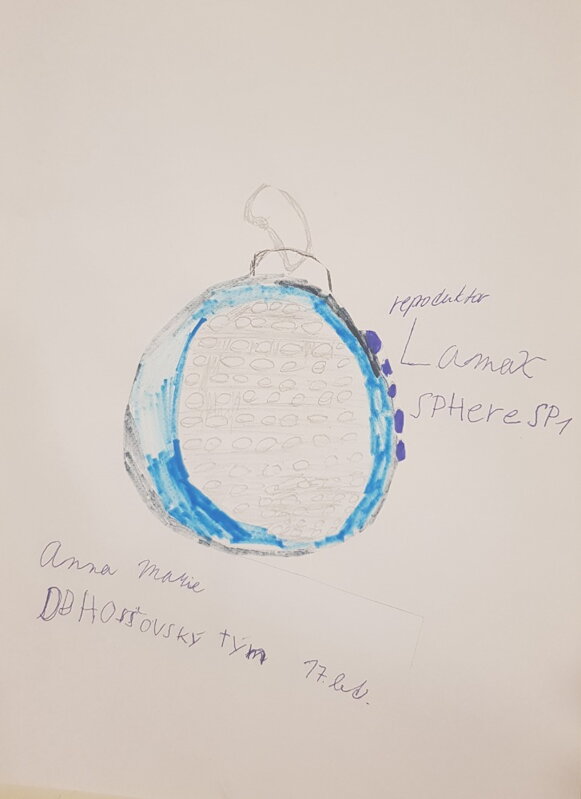 reproduktor
Lamax
SPHere SP1
Anna Marie
tým 17. let.